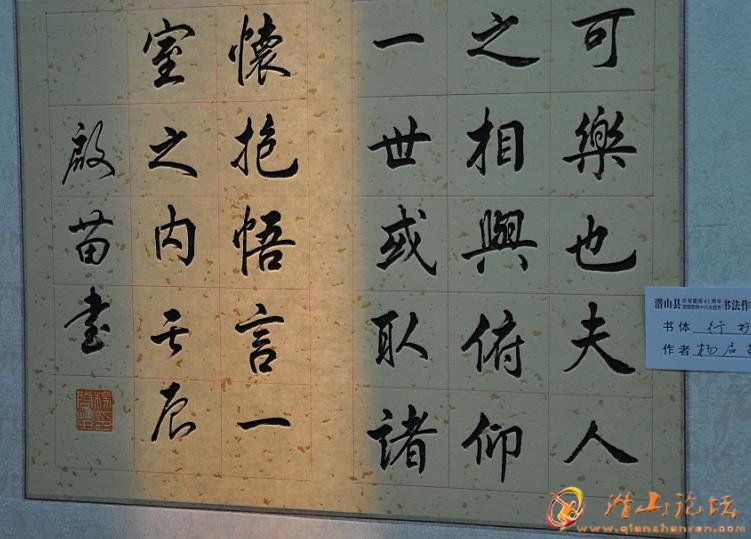 可樂也夫人
之相與俯仰
一世或取諸
懷抱悟言一
室之内壬辰
啟苗書
潜山县
书法作
书体 行
作者 杨启
潜山论坛
www.qianshanren.com